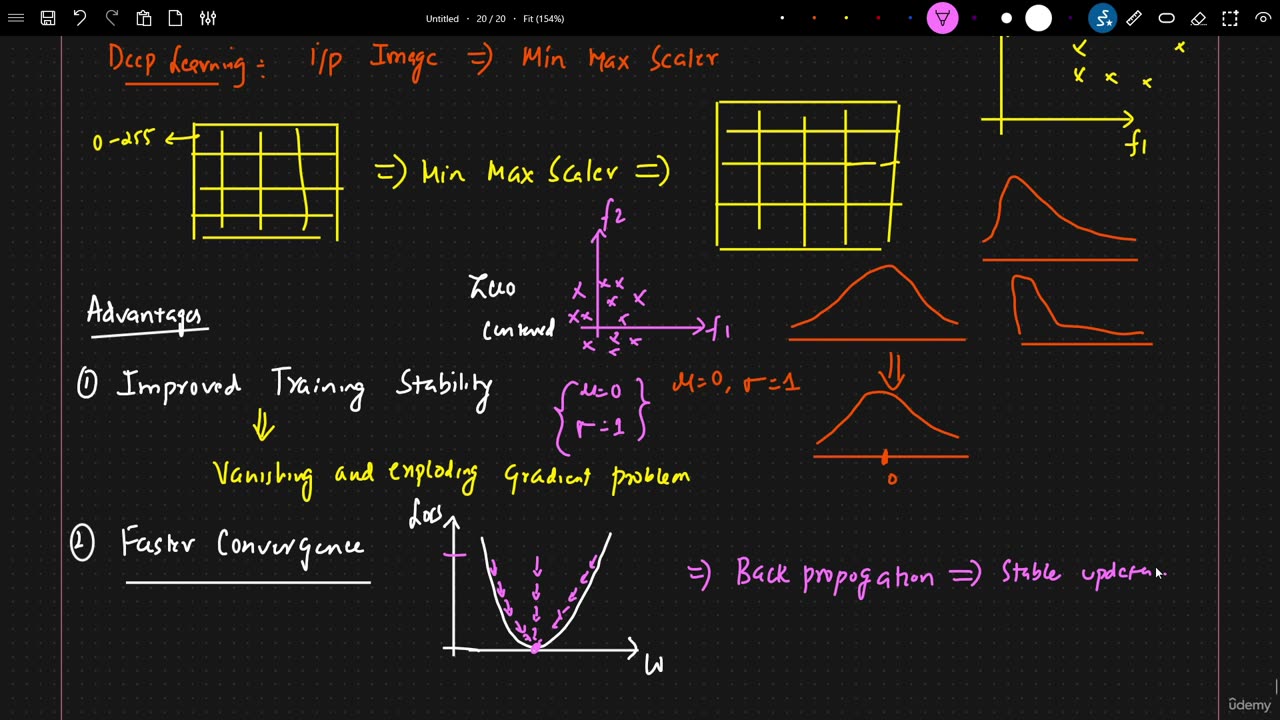 Untitled • 20 / 20 • Fit (154%)
Deep Learning : i/p Image => Min Max Scaler
f1
0-255
=> Min Max Scaler =>
f2
Zero
Centered
f1
Advantages
① Improved Training Stability
μ=0
σ=1
μ=0, σ=1
0
Vanishing and exploding gradient problem
② Faster Convergence
Loss
W
=> Back propogation => Stable updates
ûdemy